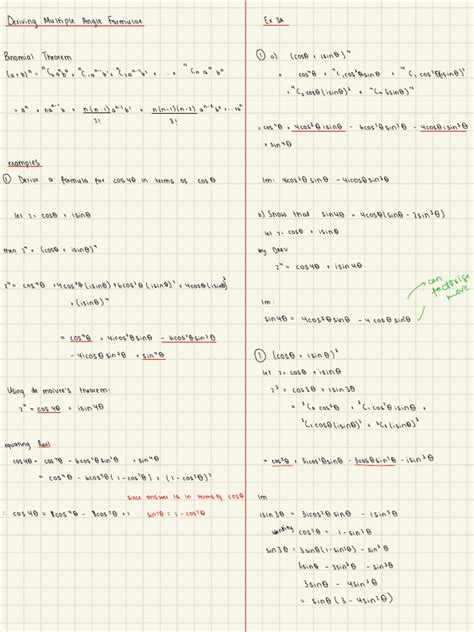 Deriving Multiple Angle Formulae
Binomial Theorem
(a+b)ⁿ = ⁿC₀aⁿb⁰ + ⁿC₁aⁿ⁻¹b¹ + ⁿC₂aⁿ⁻²b² + ... + ⁿCₙ a⁰bⁿ
= aⁿ + naⁿ⁻¹b¹ + n(n-1)/2! aⁿ⁻²b² + n(n-1)(n-2)/3!
examples
① Derive a formula for cos4θ in terms of cosθ
let z = cosθ + isinθ
then z⁴ = (cosθ + isinθ)⁴
z⁴ = cos⁴θ + 4cos³θ(isinθ) + 6cos²θ(isinθ)² + 4cosθ(isinθ)³
+ (isinθ)⁴
= cos⁴θ + 4icos³θsinθ - 6cos²θsin²θ
- 4icosθsin³θ + sin⁴θ
Using de moivre's theorem:
z⁴ = cos4θ + isin4θ
equating Real:
cos4θ = cos⁴θ - 6cos²θsin²θ + sin⁴θ
= cos⁴θ - 6cos²θ(1-cos²θ) + (1-cos²θ)²
since answer is in terms of cosθ
∴ cos4θ = 8cos⁴θ - 8cos²θ + 1 sin²θ = 1-cos²θ
Ex 3A
① a) (cosθ + isinθ)⁴
= cos⁴θ + ⁴C₁cos³θisinθ + ⁴C₂cos²θ(isinθ)²
+ ⁴C₃cosθ(isinθ)³ + ⁴C₄(isinθ)⁴
= cos⁴θ + 4cos³θisinθ - 6cos²θsin²θ - 4cosθisin³θ
+ sin⁴θ
Im: 4cos³θsinθ - 4icosθsin³θ
b) Show that sin4θ = 4cosθ(sinθ - 2sin³θ)
let z = cosθ + isinθ
by DMV
z⁴ = cos4θ + isin4θ
Im:
sin4θ = 4cos³θsinθ - 4cosθsin³θ
can
factorise
more
② (cosθ + isinθ)³
let z = cosθ + isinθ
z³ = cos3θ + isin3θ
= ³C₀cos³θ + ³C₁cos²θisinθ +
³C₂cosθ(isinθ)² + ³C₃(isinθ)³
= cos³θ + 3icos²θsinθ - 3cosθsin²θ - isin³θ
Im
isin3θ = 3icos²θsinθ - isin³θ
cos²θ = 1-sin²θ
sin3θ = 3sinθ(1-sin²θ) - sin³θ
3sinθ - 3sin³θ - sin³θ
3sinθ - 4sin³θ
= sinθ(3-4sin²θ)